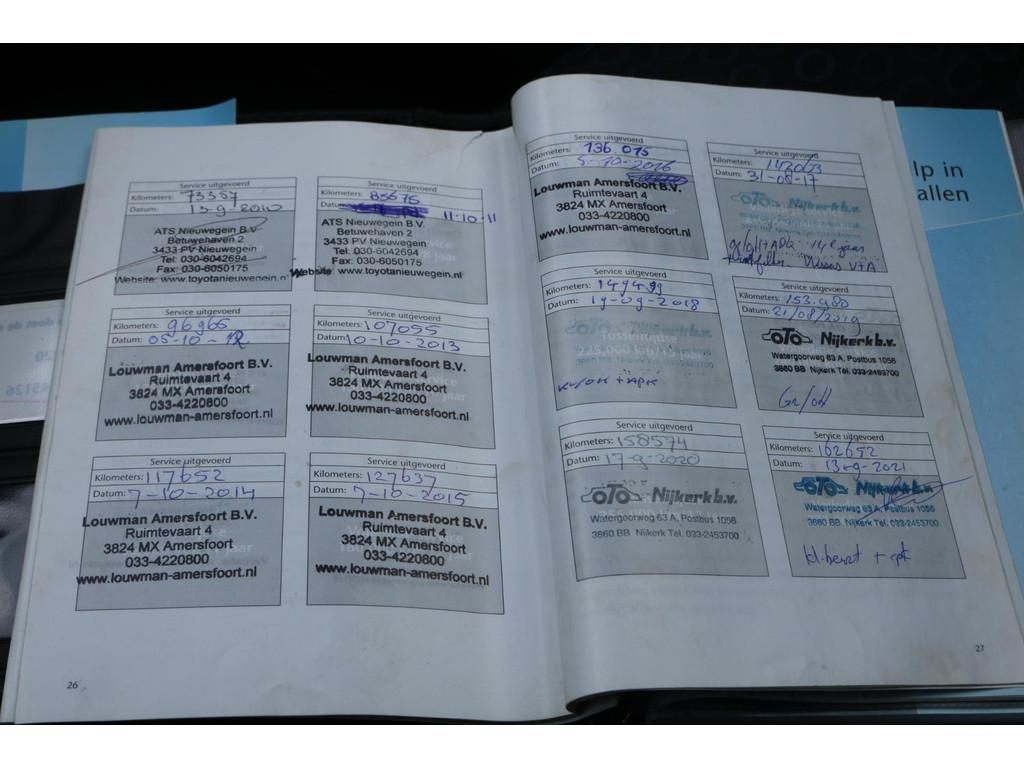 Service uitgevoerd
Kilometers: 73357
Datum: 13-9-2010
ATS Nieuwegein B.V.
Betuwehaven 2
3433 PV Nieuwegein
Tel: 030-6042694
Fax: 030-6050175
Website: www.toyotanieuwegein.nl
Service uitgevoerd
Kilometers: 85675
Datum: 11-10-11
ATS Nieuwegein B.V.
Betuwehaven 2
3433 PV Nieuwegein
Tel: 030-6042694
Fax: 030-6050175
Website: www.toyotanieuwegein.nl
Service uitgevoerd
Kilometers: 96966
Datum: 05-10-12
Louwman Amersfoort B.V.
Ruimtevaart 4
3824 MX Amersfoort
033-4220800
www.louwman-amersfoort.nl
Service uitgevoerd
Kilometers: 107055
Datum: 10-10-2013
Louwman Amersfoort B.V.
Ruimtevaart 4
3824 MX Amersfoort
033-4220800
www.louwman-amersfoort.nl
Service uitgevoerd
Kilometers: 117652
Datum: 7-10-2014
Louwman Amersfoort B.V.
Ruimtevaart 4
3824 MX Amersfoort
033-4220800
www.louwman-amersfoort.nl
Service uitgevoerd
Kilometers: 127637
Datum: 7-10-2015
Louwman Amersfoort B.V.
Ruimtevaart 4
3824 MX Amersfoort
033-4220800
www.louwman-amersfoort.nl
26
Service uitgevoerd
Kilometers: 136 075
Datum: 5-10-2016
Louwman Amersfoort B.V.
Ruimtevaart 4
3824 MX Amersfoort
033-4220800
www.louwman-amersfoort.nl
Service uitgevoerd
Kilometers:
Datum: 31-08-17
OTO Nijkerk b.v.
V+A
Service uitgevoerd
Kilometers: 149499
Datum: 19-09-2018
Nijkerk b.v.
Tussentijdse
225.000 km/
+ APK
Service uitgevoerd
Kilometers: 153.980
Datum: 21/08/2019
OTO Nijkerk b.v.
Watergoorweg 63 A, Postbus 1056
3860 BB Nijkerk Tel. 033-2453700
Gr/oH
Service uitgevoerd
Kilometers: 158574
Datum: 17-9-2020
OTO Nijkerk b.v.
Watergoorweg 63 A, Postbus 1056
3860 BB Nijkerk Tel. 033-2453700
Service uitgevoerd
Kilometers: 162652
Datum: 13-9-2021
OTO Nijkerk b.v.
Watergoorweg 63 A, Postbus 1056
3860 BB Nijkerk Tel. 033-2453700
kl-beurt + apk
27
lp in
allen
45126